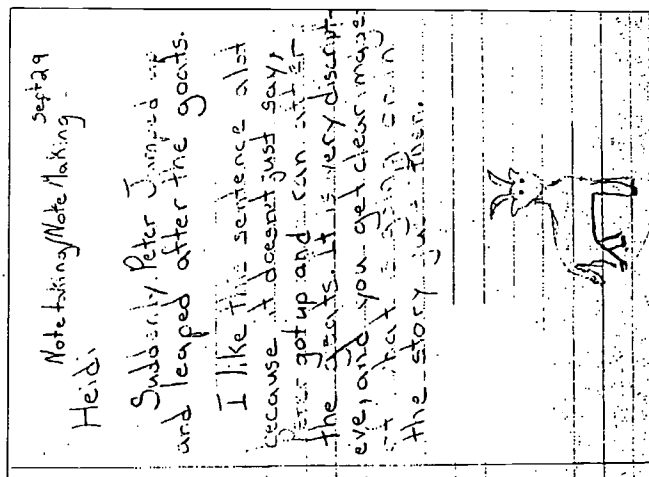 Sept 29
Note taking/Note Making
Heidi
Suddenly Peter Jumped up
and leaped after the goats.
I like this sentence alot
because it doesnt just say,
Peter got up and ran after
the goats. It is very discript-
eve, and you get clear image
of what is going on in
the story just then.